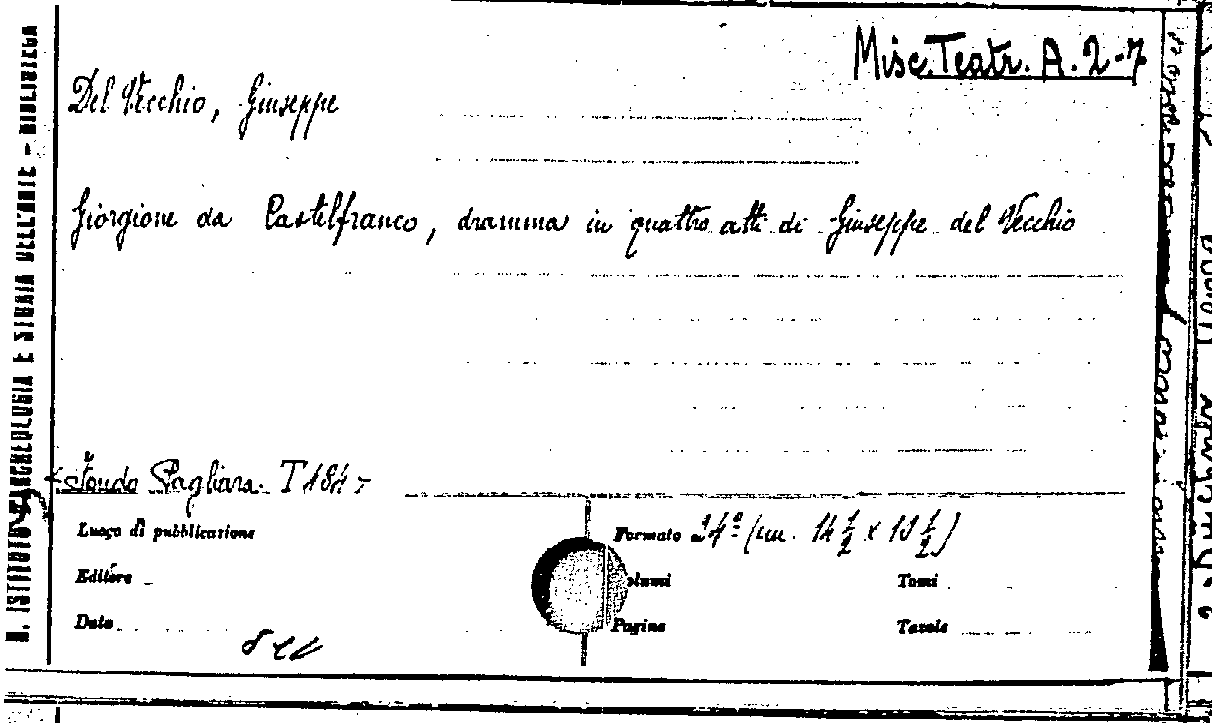 Misc. Teatr. A. 2-7
Del Vecchio, Giuseppe
Giorgione da Castelfranco, dramma in quattro atti di Giuseppe del Vecchio
Fondo Pagliara. T 184
Luogo di pubblicazione
Formato 24º (cm. 14 ½ x 10 ½)
Editore
Volumi
Tomi
Data
Pagine
Tavole
R. ISTITUTO D'ARCHEOLOGIA E STORIA DELL'ARTE – BIBLIOTECA